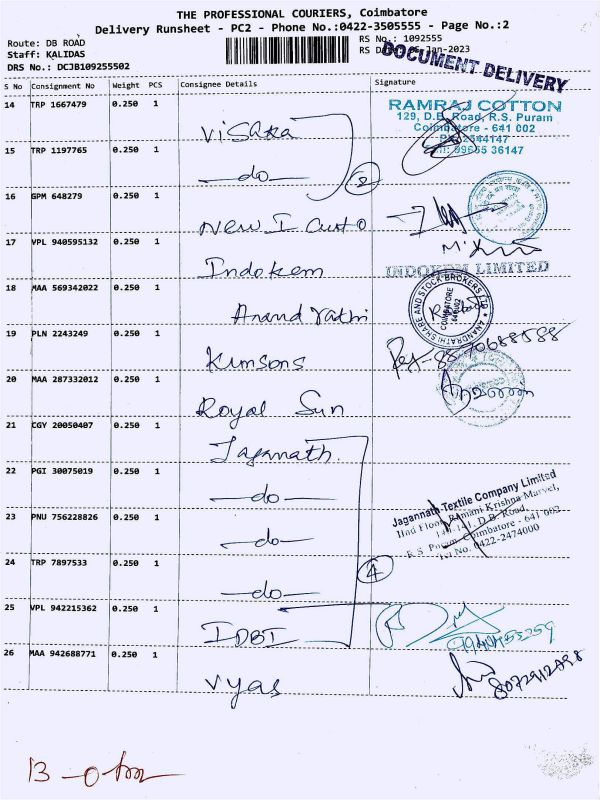 THE PROFESSIONAL COURIERS, Coimbatore
Delivery Runsheet - PC2 - Phone No.:0422-3505555 - Page No.:2
Route: DB ROAD RS No.: 1092555
Staff: KALIDAS RS Date: 06-Jan-2023
DRS No.: DCJB109255502
DOCUMENT DELIVERY
S No Consignment No Weight PCS Consignee Details Signature
14 TRP 1667479 0.250 1 Visaka
RAMRAJ COTTON
129, D.B. Road, R.S. Puram
Coimbatore - 641 002
15 TRP 1197765 0.250 1 -do-
2
16 GPM 648279 0.250 1 New I Custo
17 VPL 940595132 0.250 1 Indokem
INDOKEM LIMITED
18 MAA 569342022 0.250 1 Anand rathi
ANANDRATHI SHARE AND STOCK BROKERS LTD
COIMBATORE
641 002
19 PLN 2243249 0.250 1 Kumsons
20 MAA 287332012 0.250 1 Royal Sun
21 CGY 20050407 0.250 1 Jagannath.
22 PGI 30075019 0.250 1 -do-
Jagannath Textile Company Limited
IInd Floor, Ramani Krishna Marvel,
144-141, D.B. Road,
R.S. Puram, Coimbatore - 641 002
Tel No. 0422-2474000
23 PNU 756228826 0.250 1 -do-
24 TRP 7897533 0.250 1 -do-
4
25 VPL 942215362 0.250 1 IDBI
26 MAA 942688771 0.250 1 Vyas
13